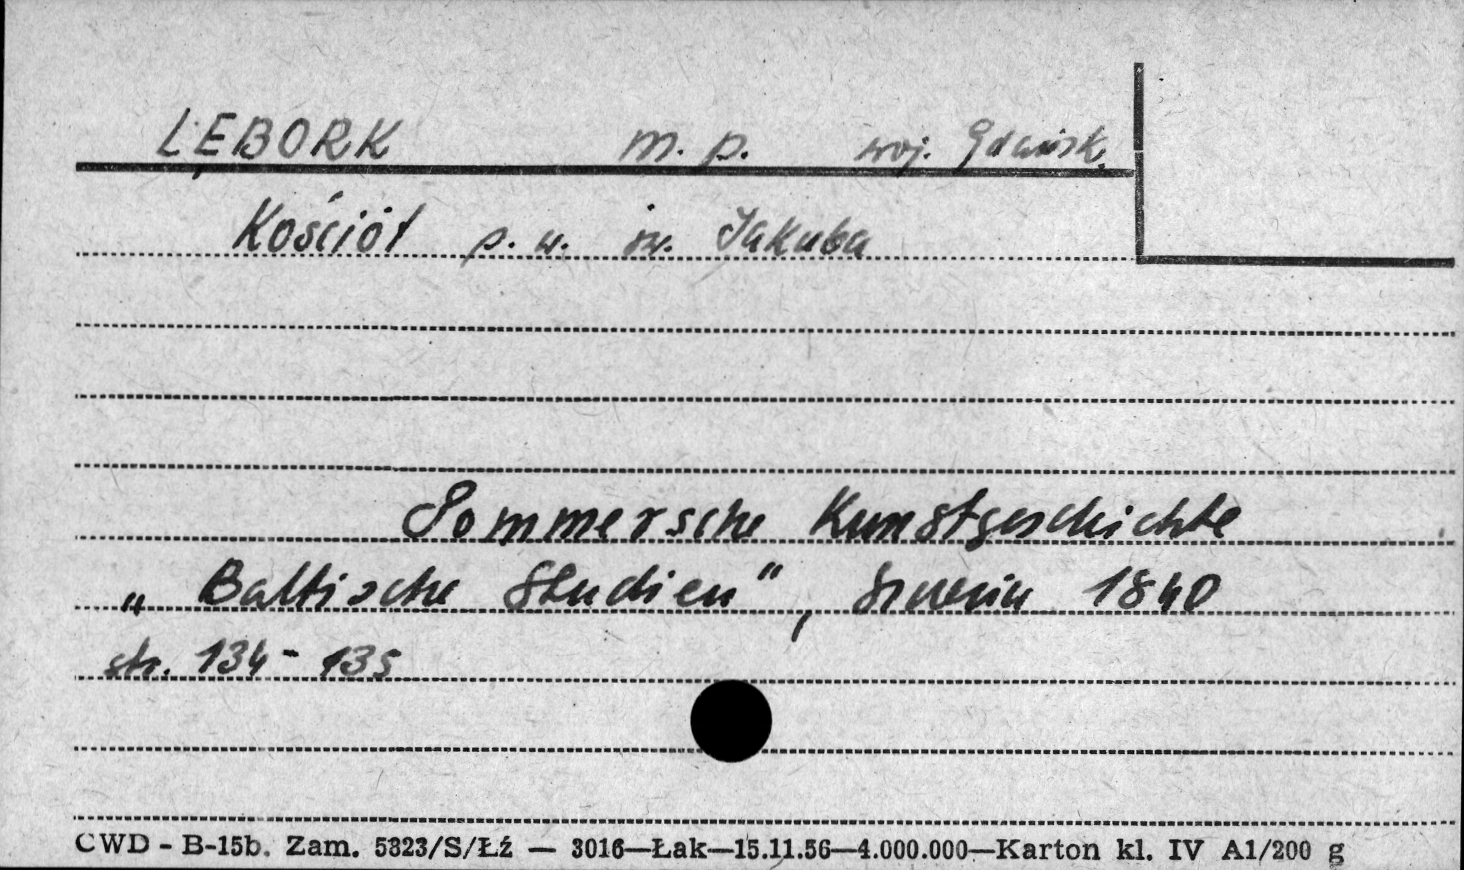 LĘBORK m. p. woj. Gdańsk.
Kościół p. w. św. Jakuba
Pommersche Kunstgeschichte
„Baltische Studien", 1840
str. 134 - 135
CWD - B-15b. Zam. 5323/S/Łź — 3016—Łak—15.11.56—4.000.000—Karton kl. IV A1/200 g